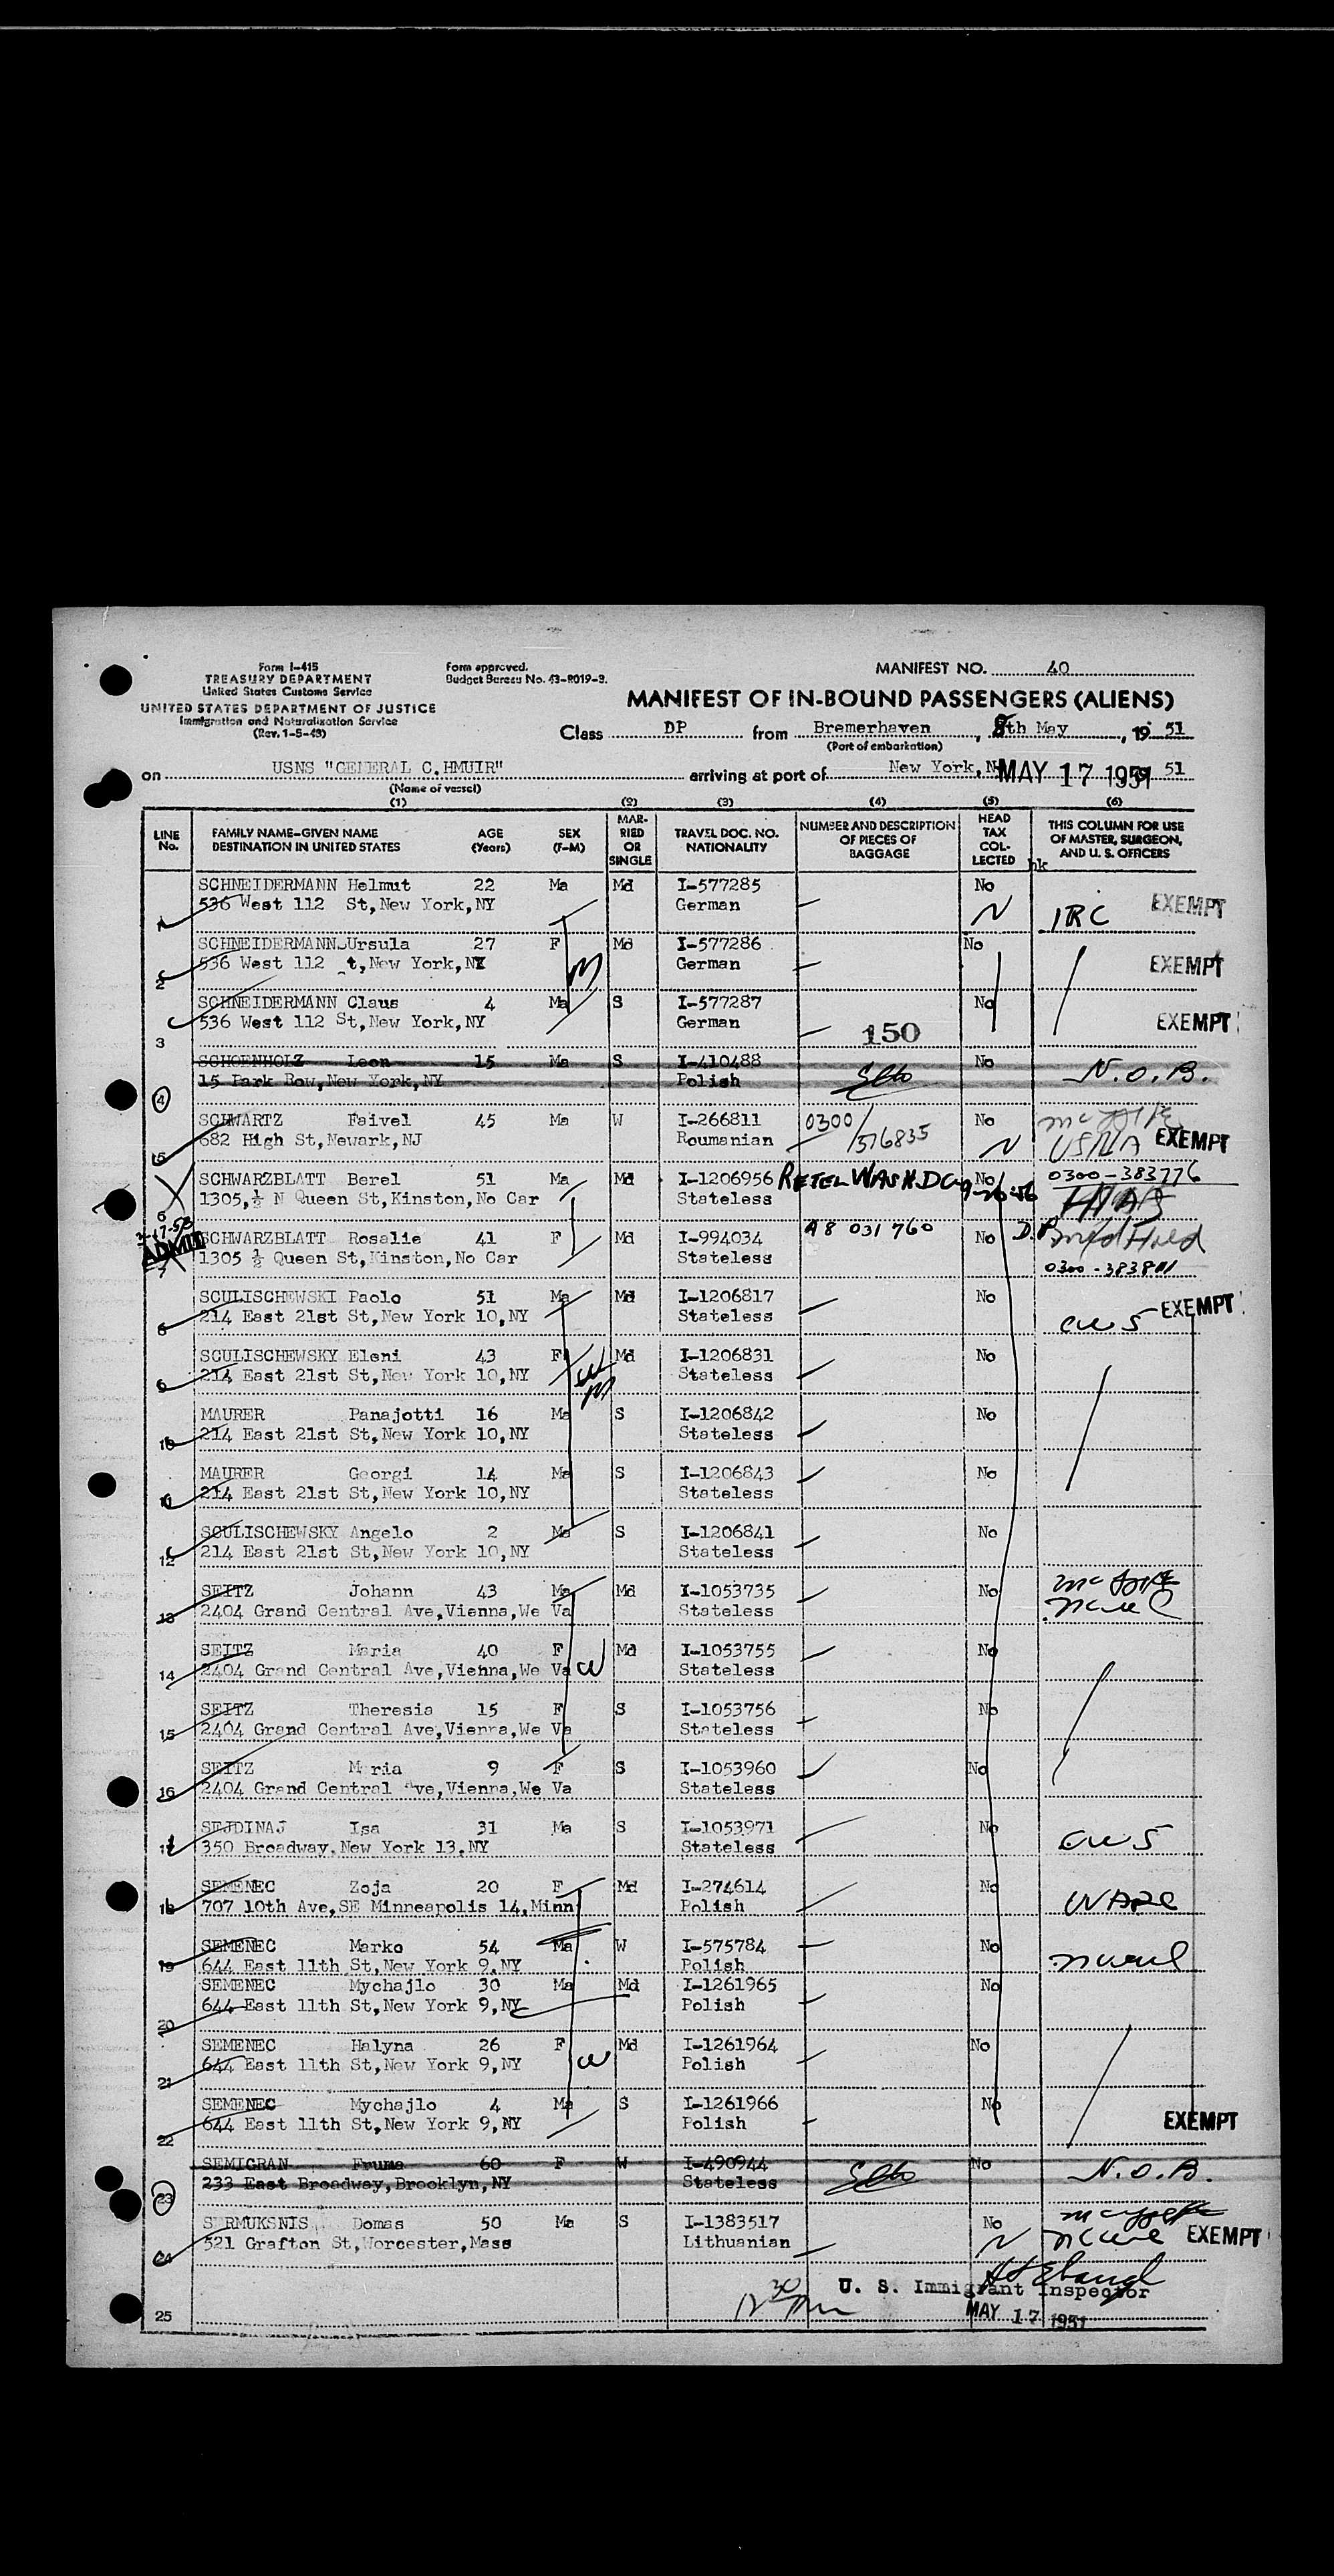 Form I-415
TREASURY DEPARTMENT
United States Customs Service
UNITED STATES DEPARTMENT OF JUSTICE
Immigration and Naturalization Service
(Rev. 1-5-43)
Form approved.
Budget Bureau No. 43-R019-3.
MANIFEST NO. 40
MANIFEST OF IN-BOUND PASSENGERS (ALIENS)
Class DP from Bremerhaven, 8th May, 19 51
(Port of embarkation)
on USNS "GENERAL C.HMUIR" arriving at port of New York, N MAY 17 1951 51
(Name of vessel)
(1) (2) (3) (4) (5) (6)
LINE No. FAMILY NAME-GIVEN NAME DESTINATION IN UNITED STATES AGE (Years) SEX (F-M) MARRIED OR SINGLE TRAVEL DOC. NO. NATIONALITY NUMBER AND DESCRIPTION OF PIECES OF BAGGAGE HEAD TAX COLLECTED THIS COLUMN FOR USE OF MASTER, SURGEON, AND U. S. OFFICERS
hk
SCHNEIDERMANN Helmut 22 Ma Md I-577285 No
1 536 West 112 St,New York,NY German IRC EXEMPT
SCHNEIDERMANN Ursula 27 F Md I-577286 No
2 536 West 112 t,New York,NY German EXEMPT
SCHNEIDERMANN Claus 4 Ma S I-577287 No
536 West 112 St,New York,NY German EXEMPT
3 150
SCHOENHOLZ Leon 15 Ma S I-410488 No
15 Park Row,New York,NY Polish N.O.B.
4
SCHWARTZ Faivel 45 Ma W I-266811 0300/576835 No
5 682 High St,Newark,NJ Roumanian USNA EXEMPT
SCHWARZBLATT Berel 51 Ma Md I-1206956 RETEL WASH.DC 9-26-56 No 0300-383776
6 1305,½ N Queen St,Kinston,No Car Stateless
2-17-53 ADMIT
SCHWARZBLATT Rosalie 41 F Md I-994034 A8 031 760 No D.P.
7 1305 ½ Queen St,Kinston,No Car Stateless
SCULISCHEWSKI Paolo 51 Ma Md I-1206817 No EXEMPT
8 214 East 21st St,New York 10,NY Stateless CWS
SCULISCHEWSKY Eleni 43 F Md I-1206831 No
9 214 East 21st St,New York 10,NY Stateless
MAURER Panajotti 16 Ma S I-1206842 No
10 214 East 21st St,New York 10,NY Stateless
MAURER Georgi 14 Ma S I-1206843 No
11 214 East 21st St,New York 10,NY Stateless
SCULISCHEWSKY Angelo 2 Ma S I-1206841 No
12 214 East 21st St,New York 10,NY Stateless
SEITZ Johann 43 Ma Md I-1053735 No
13 2404 Grand Central Ave,Vienna,We Va Stateless
SEITZ Maria 40 F Md I-1053755 No
14 2404 Grand Central Ave,Vienna,We Va Stateless
SEITZ Theresia 15 F S I-1053756 No
15 2404 Grand Central Ave,Vienna,We Va Stateless
SEITZ M ria 9 F S I-1053960 No
16 2404 Grand Central Ave,Vienna,We Va Stateless
SEJDINAJ Isa 31 Ma S I-1053971 No
17 350 Broadway.New York 13.NY Stateless CWS
SEMENEC Zoja 20 F Md I-274614 No
18 707 10th Ave,SE Minneapolis 14,Minn Polish
SEMENEC Marko 54 Ma W I-575784 No
19 644 East 11th St,New York 9,NY Polish
SEMENEC Mychajlo 30 Ma Md I-1261965 No
20 644 East 11th St,New York 9,NY Polish
SEMENEC Halyna 26 F Md I-1261964 No
21 644 East 11th St,New York 9,NY Polish
SEMENEC Mychajlo 4 Ma S I-1261966 No
22 644 East 11th St,New York 9,NY Polish EXEMPT
SEMIGRAN Fruma 60 F W I-490944 No
23 233 East Broadway,Brooklyn,NY Stateless N.O.B.
SERMUKSNIS Domas 50 Ma S I-1383517 No
24 521 Grafton St,Worcester,Mass Lithuanian EXEMPT
U. S. Immigrant Inspector
25 MAY 17 1951